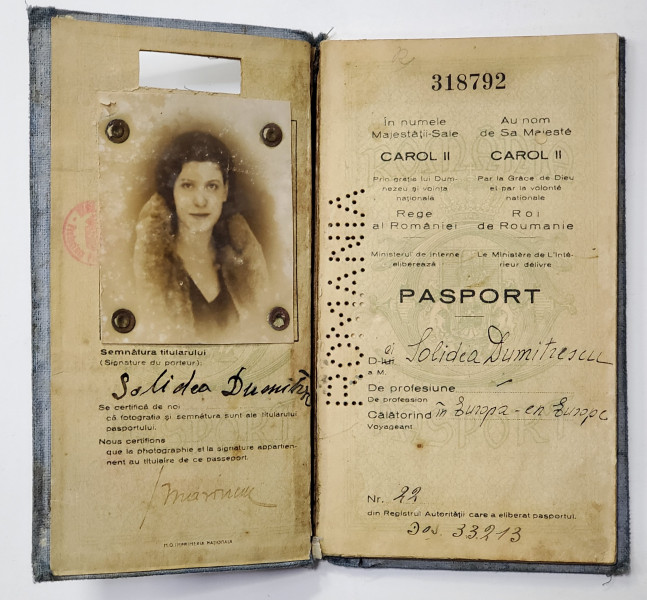 Semnătura titularului
(Signature du porteur)
Solidea Dumitr
Se certifică de noi
că fotografia și semnătura sunt ale titularului
pasportului.
Nous certifions
que la photographie et la signature appartien-
nent au titulaire de ce passeport.
M.O. IMPRIMERIA NAȚIONALĂ
318792
În numele
Majestății-Sale
CAROL II
Prin grația lui Dum-
nezeu și voința
națională
Rege
al României
Ministerul de Interne
eliberează
Au nom
de Sa Majesté
CAROL II
Par la Grâce de Dieu
et par la volonté
nationale
Roi
de Roumanie
Le Ministère de L'Inté-
rieur délivre
ROMANIA
PASPORT
D-lui Solidea Dumitrescu
a M.
De profesiune
De profession
Călătorind în Europa - en Europe
Voyageant
Nr. 22
din Registrul Autorității care a eliberat pasportul.
Dos. 33213